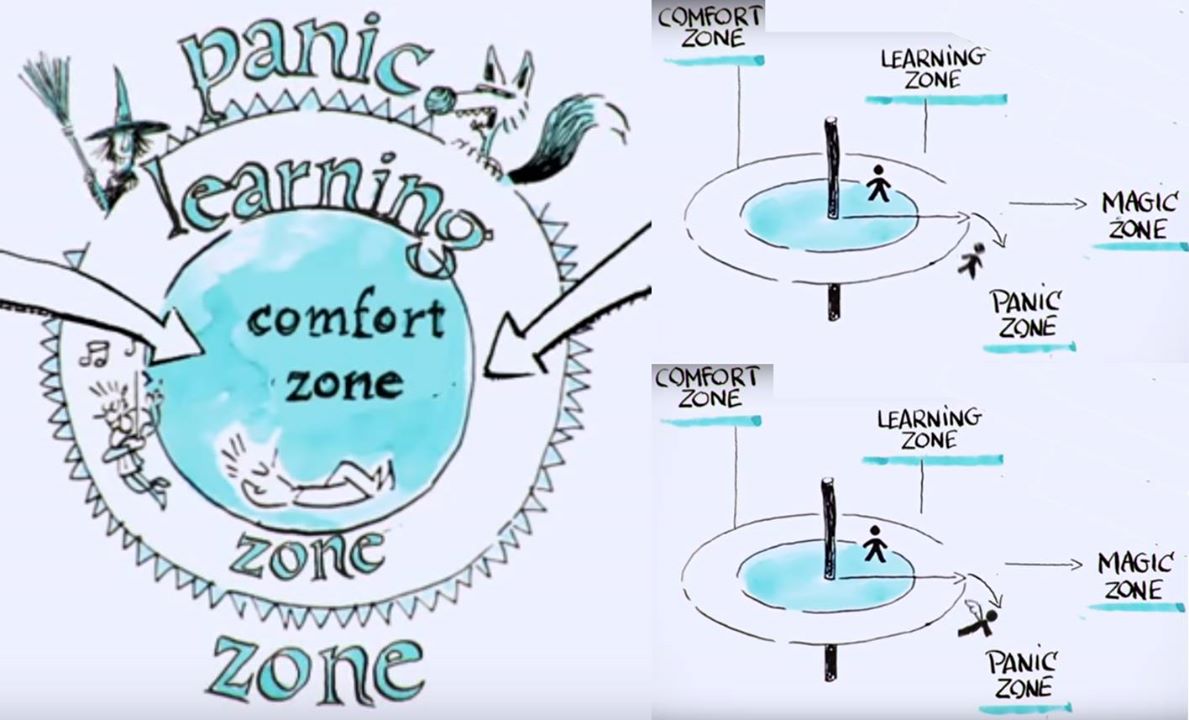 panic
learning
comfort
zone
zone
zone
COMFORT
ZONE
LEARNING
ZONE
MAGIC
ZONE
PANIC
ZONE
COMFORT
ZONE
LEARNING
ZONE
MAGIC
ZONE
PANIC
ZONE